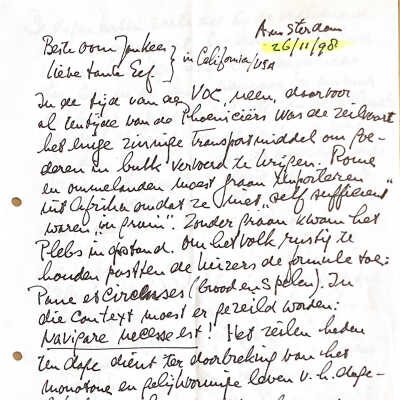 Amsterdam
26/11/98
Beste oom Jonkees
lieve tante Eef } in California/USA
In de tijd van de VOC, neen, daarvoor
al ten tijde van de Phoeniciërs was de zeilvaart
het enige zinnige transportmiddel om goe-
deren in bulk vervoerd te krijgen. Rome
en ommelanden moest graan importeren
uit Afrika omdat ze niet "self sufficient"
waren "in grain". Zonder graan kwam het
Plebs in opstand. Om het volk rustig te
houden pasten de keizers de formule toe:
Pane et Circenses (brood en spelen). In
die context moest er gezeild worden:
Navigare necesse est! Het zeilen heden
ten dage dient ter doorbreking van het
monotone en gelijkvormige leven v.h. dage-